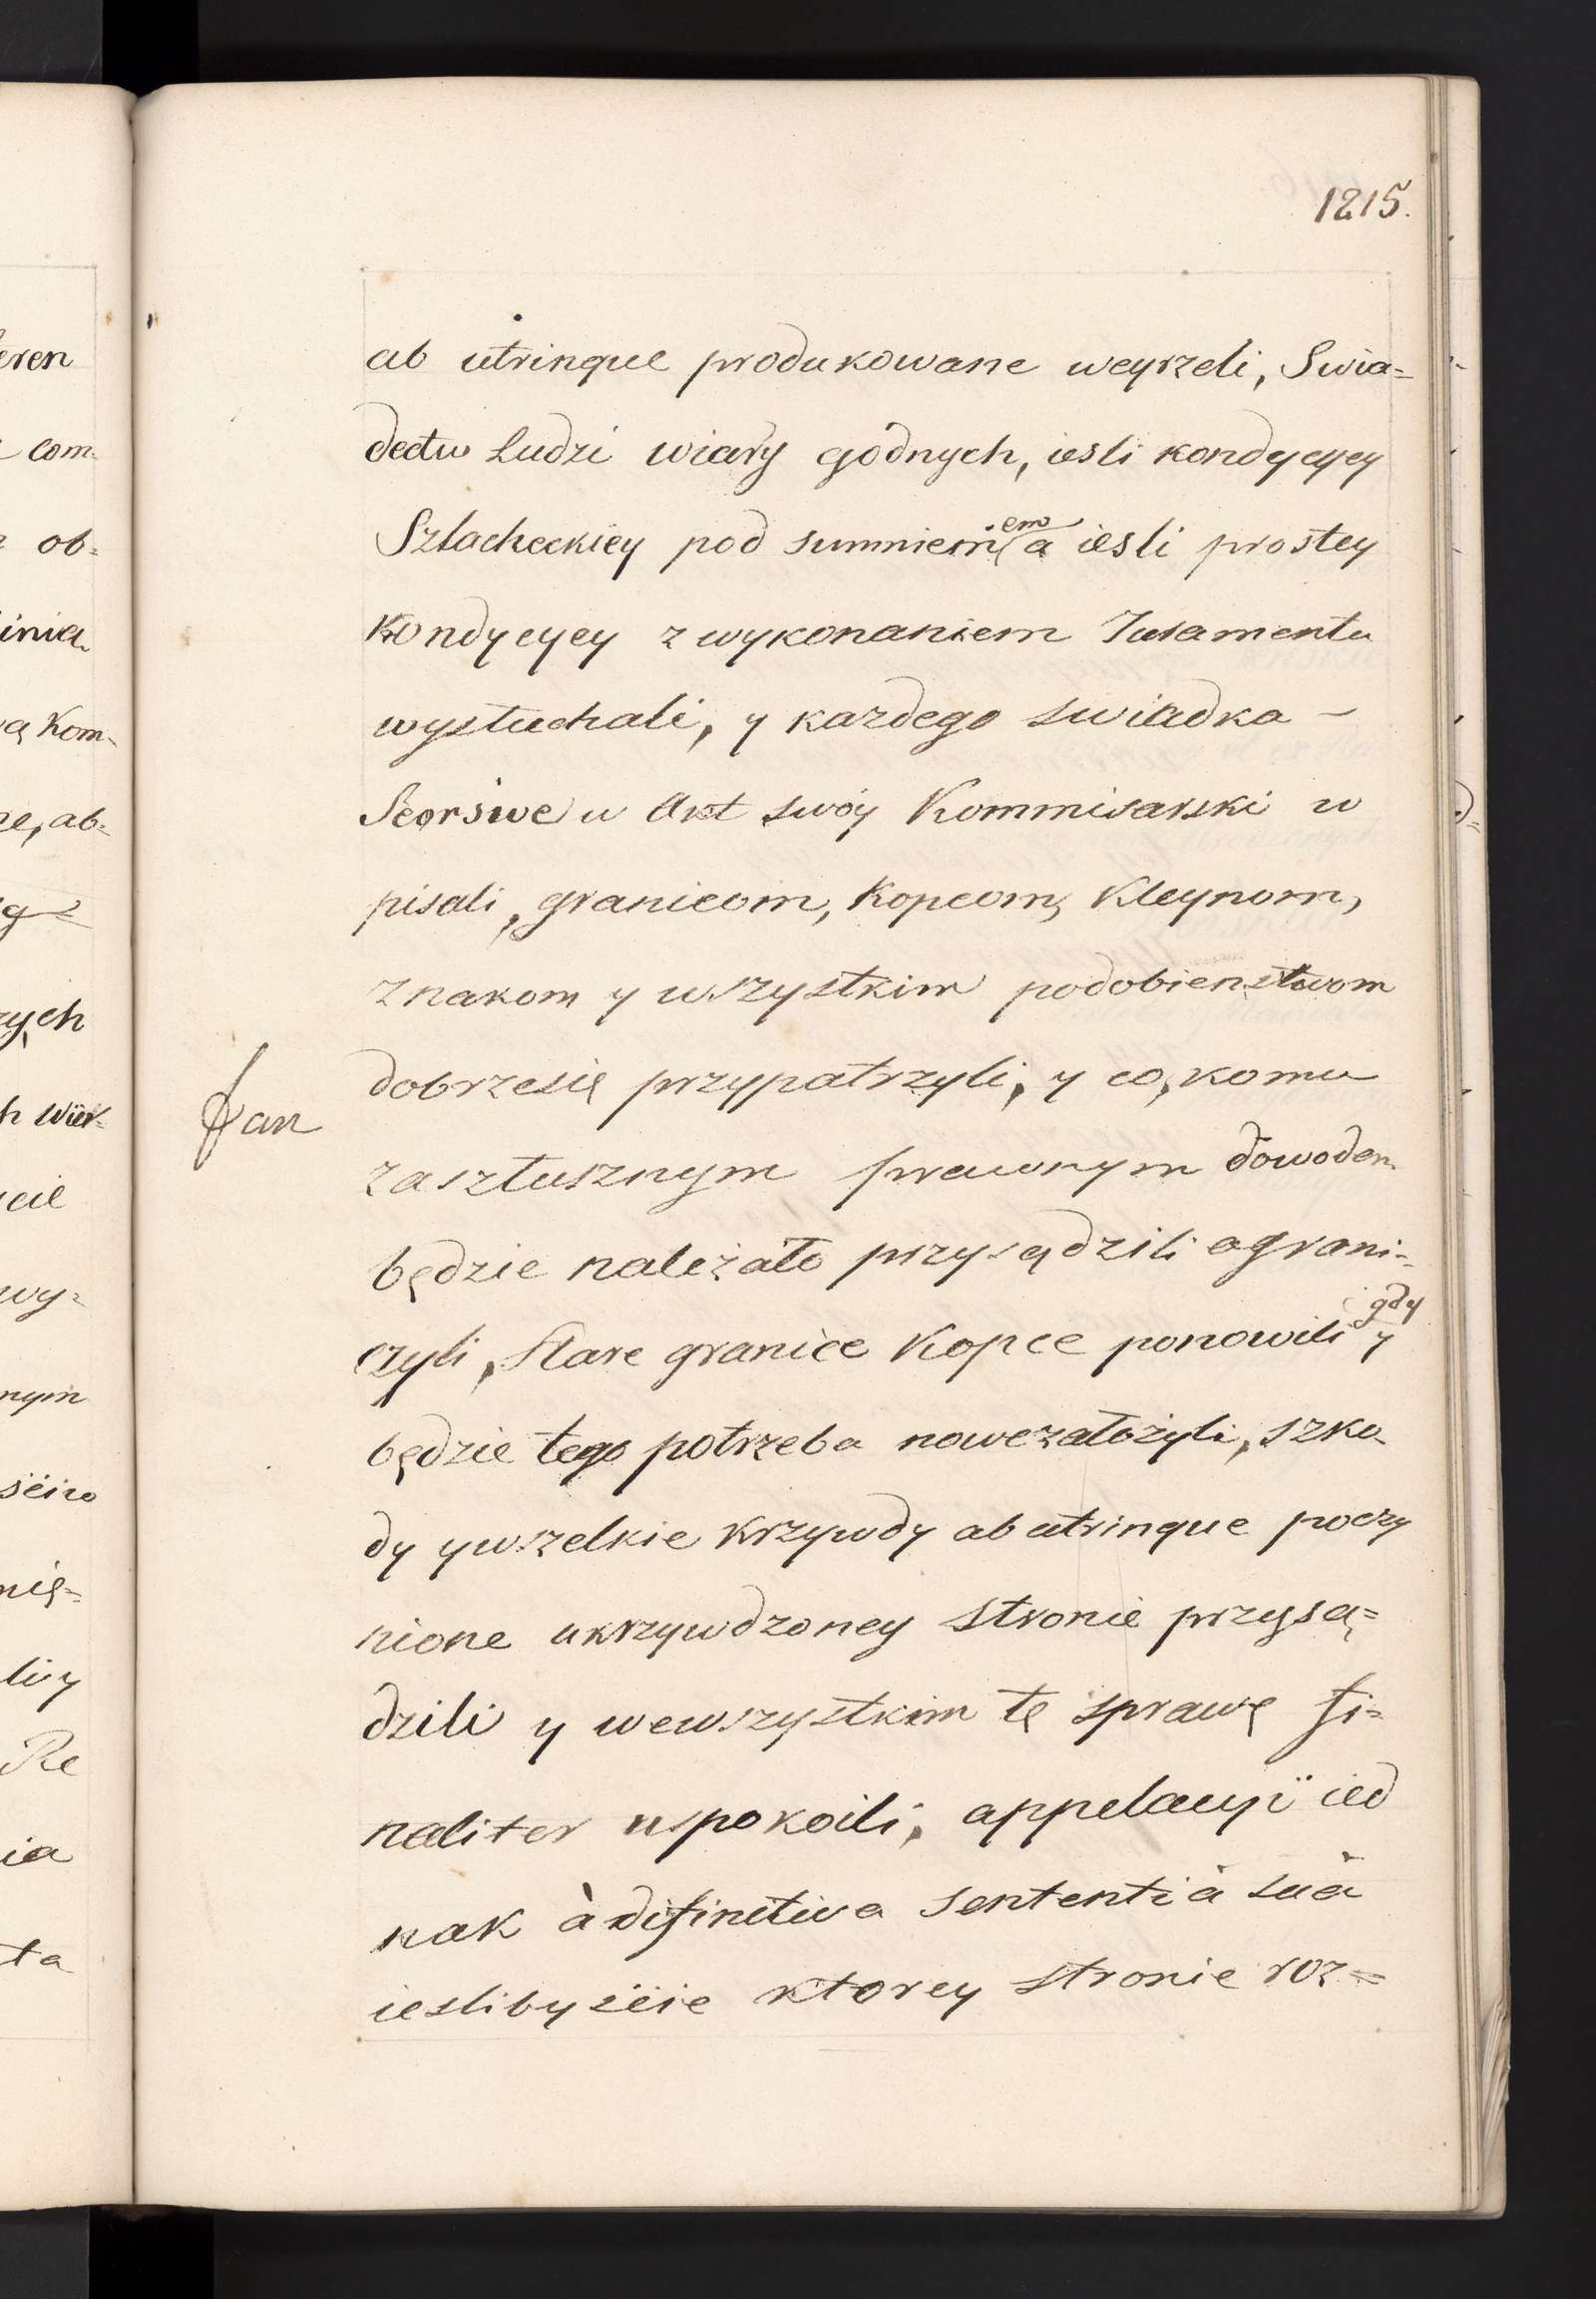 1215.
ab utrinque produkowane weyrzeli, Swia=
dectw Ludzi wiary godnych, iesli kondycyey
Szlacheckiey pod sumniem em a iesli prostey
Kondycyey z wykonaniem Juramentu
wysłuchali, y kazdego swiadka –
Seorsive w Akt swóy Kommisarski w
pisali, granicom, Kopcom, Kleynom,
znakom y wszystkim podobienstwom
dobrzesię przypatrzyli, y co, komu
za szłusznym prawnym dowodem
będzie należało przysądzili ograni=
czyli, Stare granice Kopce ponowili y gdy
będzie tego potrzeba nowezałożyli, szko-
dy ywszelkie krzywdy ab utrinque poczy
nione ukrzywdzoney stronie przysą=
dzili y wewszystkim tę sprawę fi=
naliter uspokoili, appelacyi ied
nak à difinitiva sententià suà
ieslibysie ktorey stronie roz=
eren
com=
ob=
inia
ą Kom=
ze, ab=
ych
h wier=
cie
wy=
nym
nię=
li y
Re
ia
ta